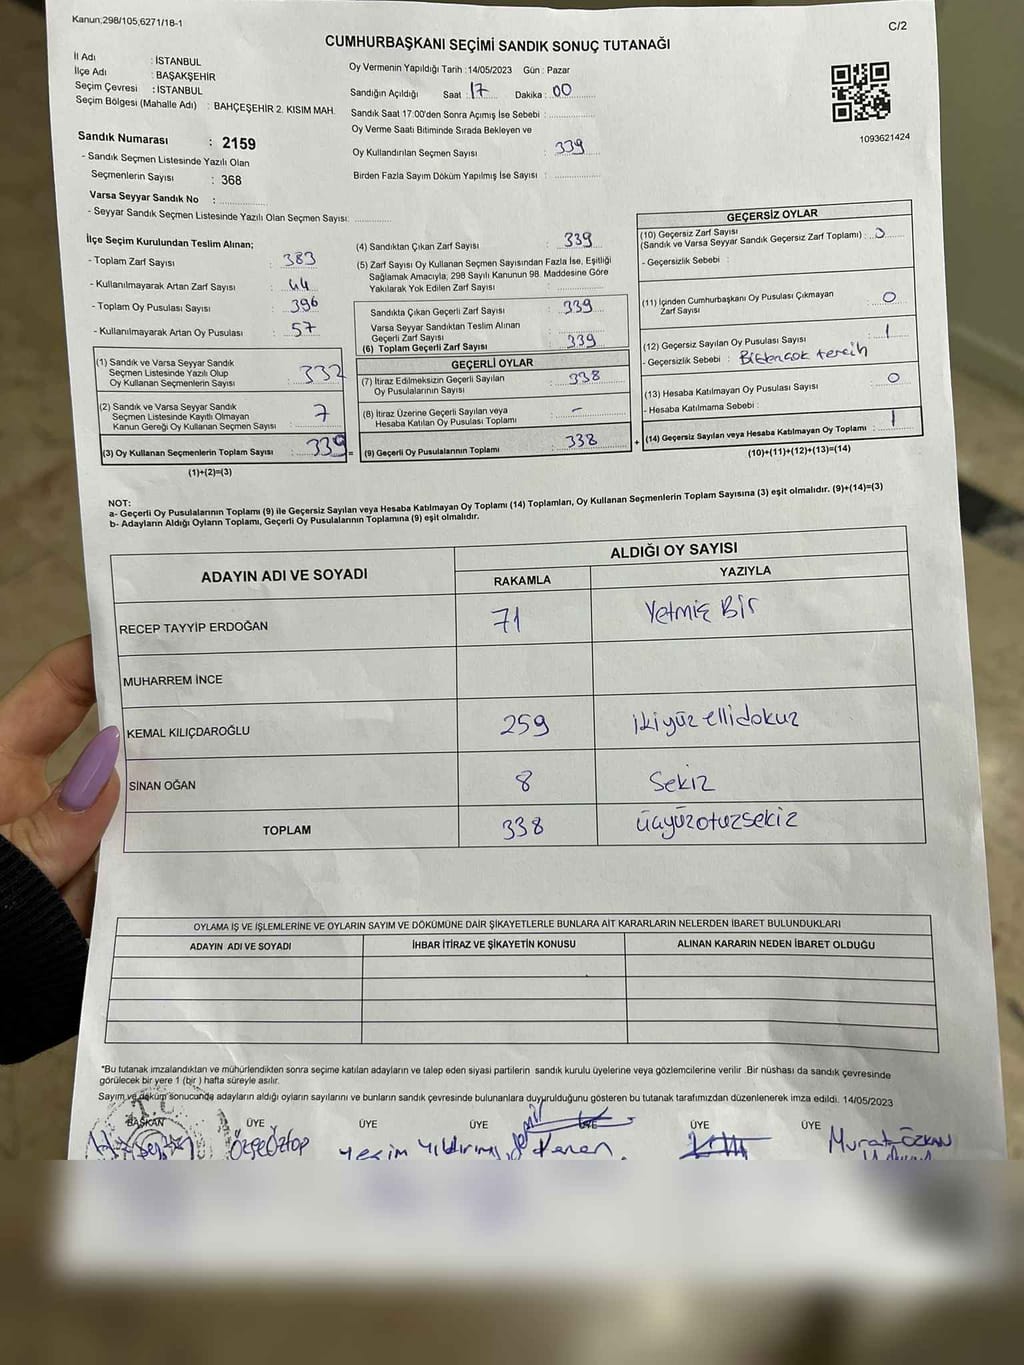 Kanun;298/105,6271/18-1
C/2
CUMHURBAŞKANI SEÇİMİ SANDIK SONUÇ TUTANAĞI
İl Adı : İSTANBUL
İlçe Adı : BAŞAKŞEHİR
Seçim Çevresi : İSTANBUL
Seçim Bölgesi (Mahalle Adı) : BAHÇEŞEHİR 2. KISIM MAH.
Oy Vermenin Yapıldığı Tarih :14/05/2023 Gün : Pazar
Sandığın Açıldığı Saat : 17 Dakika : 00
Sandık Saat 17:00'den Sonra Açımış İse Sebebi :
Oy Verme Saati Bitiminde Sırada Bekleyen ve
Oy Kullandırılan Seçmen Sayısı : 339
Birden Fazla Sayım Döküm Yapılmış İse Sayısı :
1093621424
Sandık Numarası : 2159
- Sandık Seçmen Listesinde Yazılı Olan
Seçmenlerin Sayısı : 368
Varsa Seyyar Sandık No :
- Seyyar Sandık Seçmen Listesinde Yazılı Olan Seçmen Sayısı:
İlçe Seçim Kurulundan Teslim Alınan;
- Toplam Zarf Sayısı : 383
- Kullanılmayarak Artan Zarf Sayısı : 44
- Toplam Oy Pusulası Sayısı : 396
- Kullanılmayarak Artan Oy Pusulası : 57
(1) Sandık ve Varsa Seyyar Sandık
Seçmen Listesinde Yazılı Olup
Oy Kullanan Seçmenlerin Sayısı : 332
(2) Sandık ve Varsa Seyyar Sandık
Seçmen Listesinde Kayıtlı Olmayan
Kanun Gereği Oy Kullanan Seçmen Sayısı : 7
(3) Oy Kullanan Seçmenlerin Toplam Sayısı : 339 =
(1)+(2)=(3)
(4) Sandıktan Çıkan Zarf Sayısı : 339
(5) Zarf Sayısı Oy Kullanan Seçmen Sayısından Fazla İse, Eşitliği
Sağlamak Amacıyla; 298 Sayılı Kanunun 98. Maddesine Göre
Yakılarak Yok Edilen Zarf Sayısı :
Sandıkta Çıkan Geçerli Zarf Sayısı : 339
Varsa Seyyar Sandıktan Teslim Alınan
Geçerli Zarf Sayısı :
(6) Toplam Geçerli Zarf Sayısı : 339
GEÇERLİ OYLAR
(7) İtiraz Edilmeksizin Geçerli Sayılan
Oy Pusulalarının Sayısı : 338
(8) İtiraz Üzerine Geçerli Sayılan veya
Hesaba Katılan Oy Pusulası Toplamı : -
(9) Geçerli Oy Pusulalarının Toplamı : 338 +
GEÇERSİZ OYLAR
(10) Geçersiz Zarf Sayısı
(Sandık ve Varsa Seyyar Sandık Geçersiz Zarf Toplamı) :
- Geçersizlik Sebebi :
(11) İçinden Cumhurbaşkanı Oy Pusulası Çıkmayan
Zarf Sayısı : 0
(12) Geçersiz Sayılan Oy Pusulası Sayısı : 1
- Geçersizlik Sebebi : Birden çok tercih
(13) Hesaba Katılmayan Oy Pusulası Sayısı : 0
- Hesaba Katılmama Sebebi :
(14) Geçersiz Sayılan veya Hesaba Katılmayan Oy Toplamı : 1
(10)+(11)+(12)+(13)=(14)
NOT:
a- Geçerli Oy Pusulalarının Toplamı (9) ile Geçersiz Sayılan veya Hesaba Katılmayan Oy Toplamı (14) Toplamları, Oy Kullanan Seçmenlerin Toplam Sayısına (3) eşit olmalıdır. (9)+(14)=(3)
b- Adayların Aldığı Oyların Toplamı, Geçerli Oy Pusulalarının Toplamına (9) eşit olmalıdır.
ADAYIN ADI VE SOYADI
ALDIĞI OY SAYISI
RAKAMLA YAZIYLA
RECEP TAYYİP ERDOĞAN 71 Yetmiş Bir
MUHARREM İNCE
KEMAL KILIÇDAROĞLU 259 ikiyüz ellidokuz
SİNAN OĞAN 8 Sekiz
TOPLAM 338 üçyüzotuzsekiz
OYLAMA İŞ VE İŞLEMLERİNE VE OYLARIN SAYIM VE DÖKÜMÜNE DAİR ŞİKAYETLERLE BUNLARA AİT KARARLARIN NELERDEN İBARET BULUNDUKLARI
ADAYIN ADI VE SOYADI İHBAR İTİRAZ VE ŞİKAYETİN KONUSU ALINAN KARARIN NEDEN İBARET OLDUĞU
*Bu tutanak imzalandıktan ve mühürlendikten sonra seçime katılan adayların ve talep eden siyasi partilerin sandık kurulu üyelerine veya gözlemcilerine verilir .Bir nüshası da sandık çevresinde
görülecek bir yere 1 (bir ) hafta süreyle asılır.
Sayım ve döküm sonucunda adayların aldığı oyların sayılarını ve bunların sandık çevresinde bulunanlara duyurulduğunu gösteren bu tutanak tarafımızdan düzenlenerek imza edildi. 14/05/2023
T.C.
BAŞKAN ÜYE ÜYE ÜYE ÜYE ÜYE ÜYE
Özge Öztop Yesim Yıldırım Kenan Murat ÖZKAN